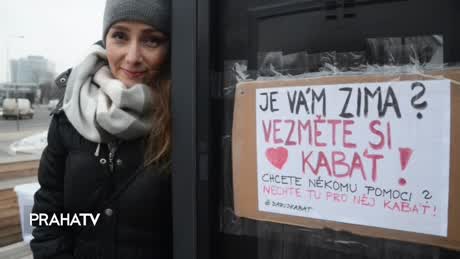 JE VÁM ZIMA?
VEZMĚTE SI
KABÁT!
CHCETE NĚKOMU POMOCI?
NECHTE TU PRO NĚJ KABÁT!
@DARUJKABAT
PRAHATV